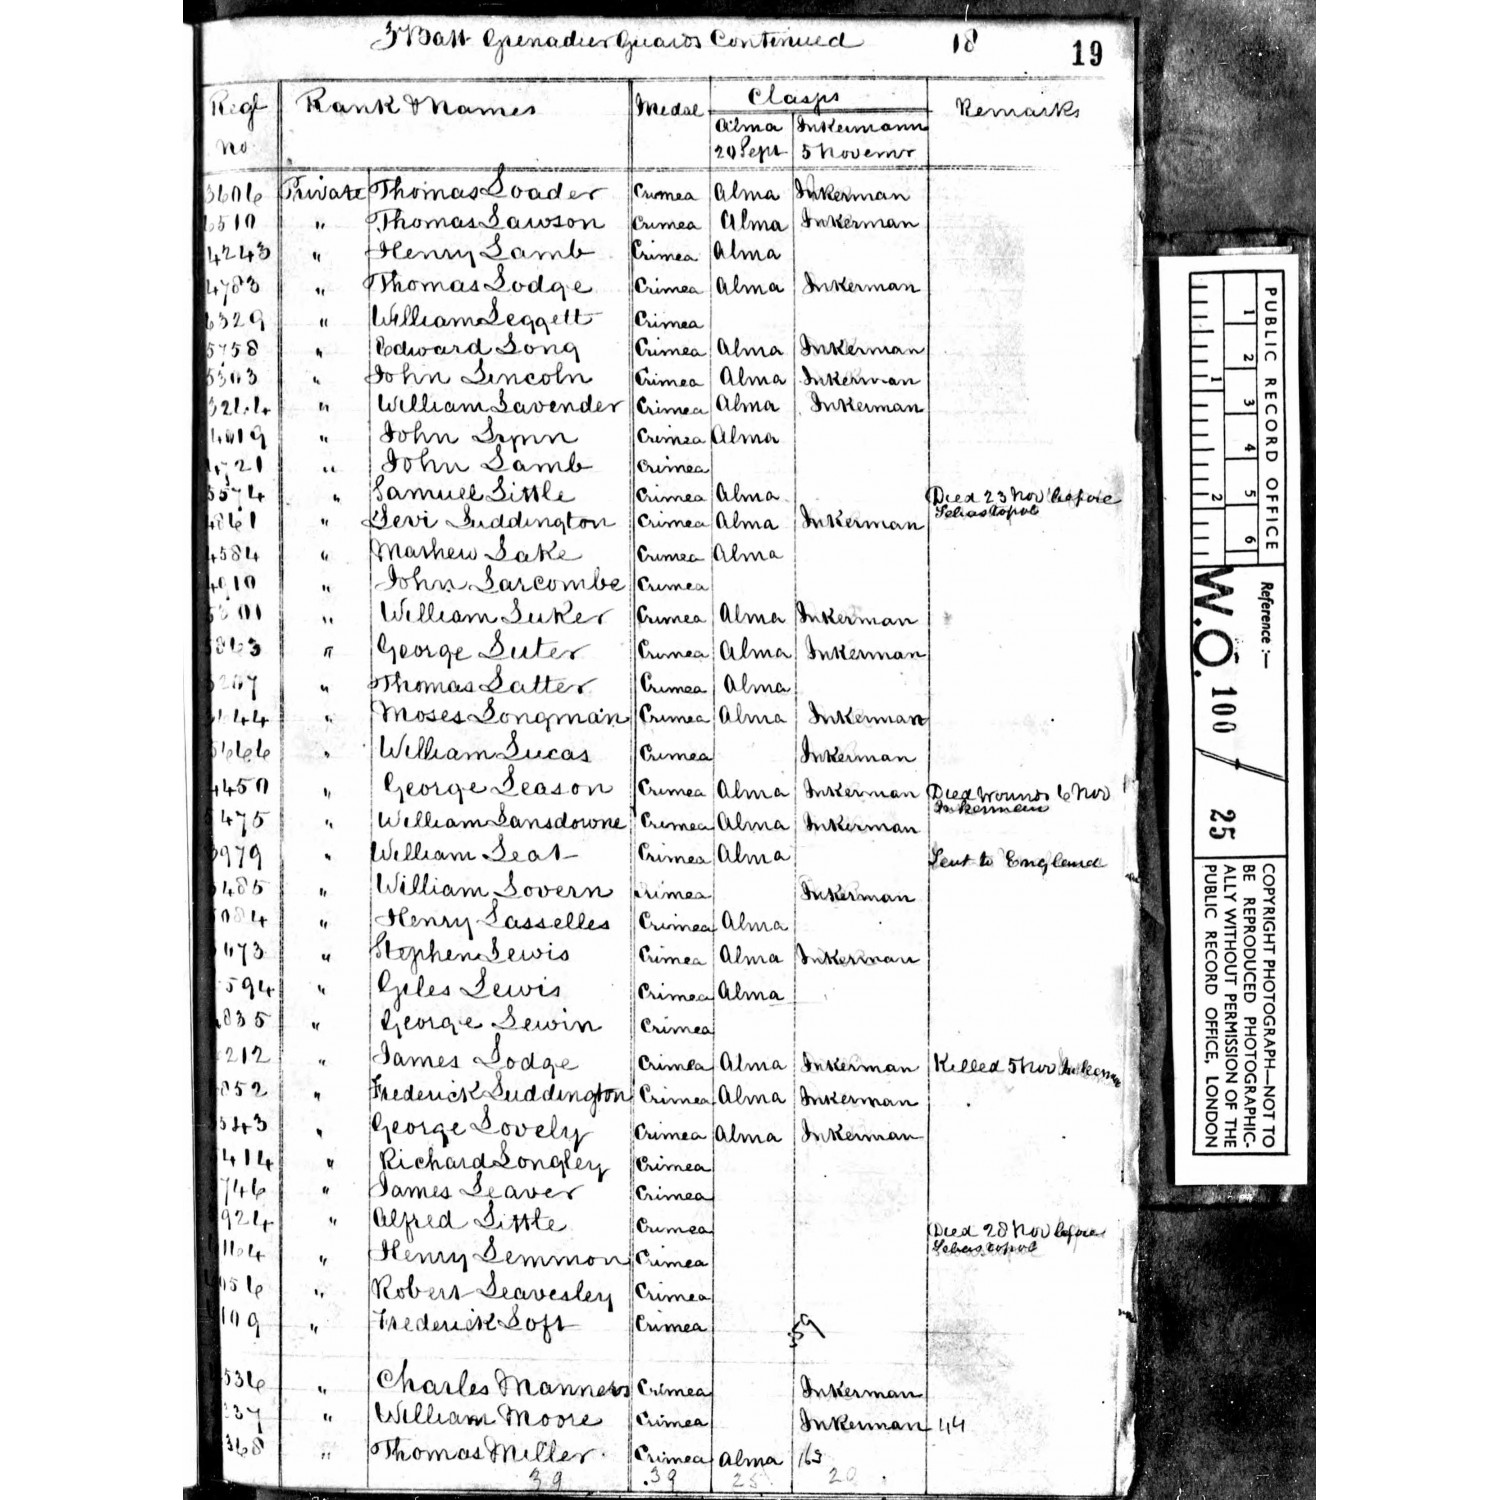 3 Batt Grenadier Guards Continued 18 19
Regl No Rank & Names Medal Clasps Remarks
Alma 20 Sept Inkermann 5 Novemr
3606 Private Thomas Loader Crimea Alma Inkerman
6510 " Thomas Lawson Crimea Alma Inkerman
4243 " Henry Lamb Crimea Alma
4783 " Thomas Lodge Crimea Alma Inkerman
6329 " William Leggett Crimea
5758 " Edward Long Crimea Alma Inkerman
5303 " John Lincoln Crimea Alma Inkerman
" William Lavender Crimea Alma Inkerman
4019 " John Lynn Crimea Alma
" John Lamb Crimea
5574 " Samuel Little Crimea Alma Died 23 Nov before Sebastopol
4861 " Levi Luddington Crimea Alma Inkerman
4584 " Mathew Lake Crimea Alma
4010 " John Larcombe Crimea
" William Luker Crimea Alma Inkerman
" George Luter Crimea Alma Inkerman
" Thomas Latter Crimea Alma
" Moses Longman Crimea Alma Inkerman
5666 " William Lucas Crimea Inkerman
4450 " George Leason Crimea Alma Inkerman Died Wounds 6 Nov Inkerman
475 " William Lansdowne Crimea Alma Inkerman
979 " William Leat Crimea Alma Sent to England
485 " William Lovern Crimea Inkerman
084 " Henry Lasselles Crimea Alma
" Stephen Lewis Crimea Alma Inkerman
594 " Giles Lewis Crimea Alma
835 " George Lewin Crimea
212 " James Lodge Crimea Alma Inkerman Killed 5 Nov Inkerman
852 " Frederick Luddington Crimea Alma Inkerman
543 " George Lovely Crimea Alma Inkerman
414 " Richard Longley Crimea
746 " James Leaver Crimea
924 " Alfred Little Crimea Died 28 Nov before Sebastopol
" Henry Lemmon Crimea
056 " Robert Leavesley Crimea
109 " Frederick Loft Crimea
59
536 " Charles Manners Crimea Inkerman
37 " William Moore Crimea Inkerman 44
368 " Thomas Miller Crimea Alma 163
39 39 25 20
PUBLIC RECORD OFFICE
1 2 3 4 5 6
1 2
Reference :-
W.O. 100 / 25
COPYRIGHT PHOTOGRAPH—NOT TO
BE REPRODUCED PHOTOGRAPHIC-
ALLY WITHOUT PERMISSION OF THE
PUBLIC RECORD OFFICE, LONDON